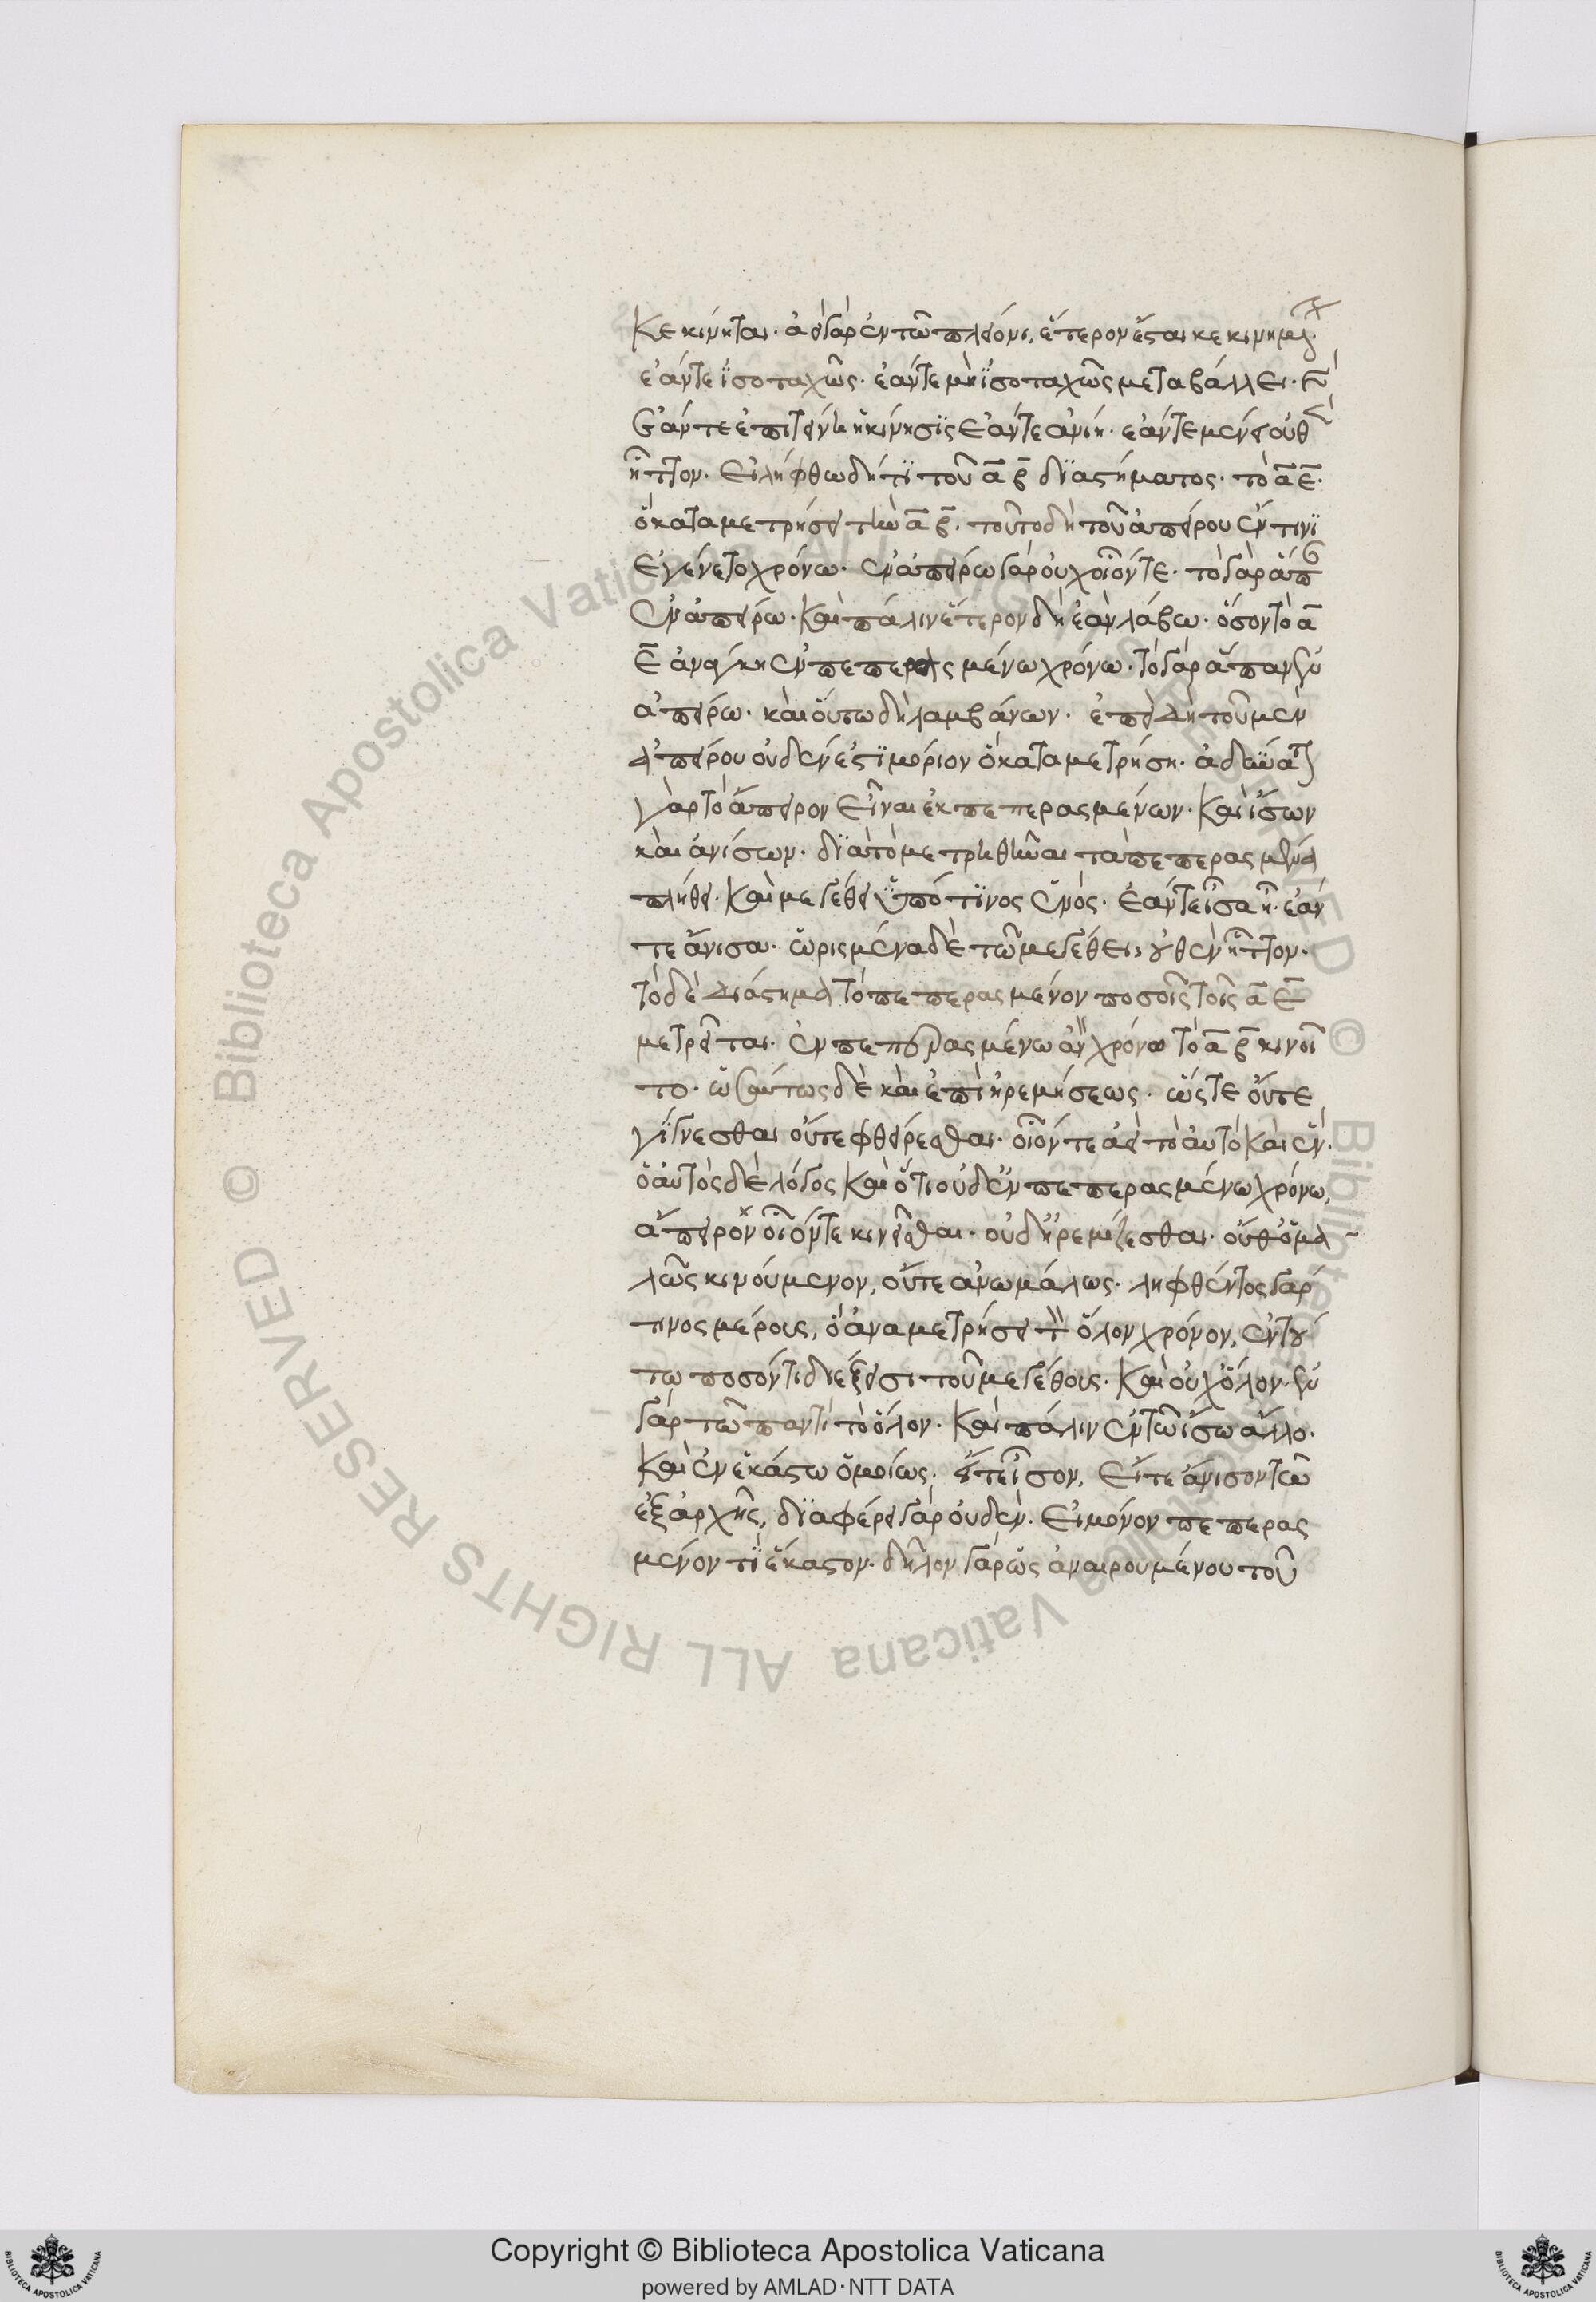 Κεκίνηται· ἀεὶ γὰρ ἐν τῶ πλείονι, ἕτερον ἔσται κεκινημέν
ἐάν τε ϊσοταχῶς· ἐάν τε μὴ ϊσοταχῶς μεταβάλλει· καὶ
ἐάν τε ἐπιτείνη ἡ κίνησϊς ἐάν τε ἀνίη· ἐάν τε μένει οὐθὲν
ἧττον. Εἰλήφθω δή τϊ τοῦ α β δϊαστήματος· τὸ α ε·
ὃ καταμετρήσει τὴν α β. τοῦτο δὴ τοῦ ἀπείρου ἔν τινϊ
Ἐγένετο χρόνω· ἐν ἀπείρω γὰρ οὐχ οἷόν τε· τὸ γὰρ ἅπαν
ἐν ἀπείρω· Καὶ πάλιν ἕτερον δὴ ἐὰν λάβω· ὅσον τὸ α
ε ἀνάγκη ἐν πεπερασμένω χρόνω· τὸ γὰρ ἅπαν ἐν
ἀπείρω· καὶ οὕτω δὴ λαμβάνων· ἐπειδὴ τοῦ μὲν
ἀπείρου οὐδέν ἐστϊ μόριον ὃ καταμετρήση· ἀδύνατον
γὰρ τὸ ἄπειρον εἶναι ἐκ πεπερασμένων· Καὶ ἴσων
καὶ ἀνίσων· δϊὰ τὸ μετρηθῆναι τὰ πεπερασμένα
πλήθει· Καὶ μεγέθει ὑπό τϊνος ἑνός· Ἐάν τε ἴσα ἦ· ἐάν
τε ἄνισα· ὡρισμένα δὲ τῶ μεγέθει, οὐθὲν ἧττον·
τὸ δὲ διάστημα τὸ πεπερασμένον ποσοῖς τοῖς α ε
μετρεῖται· ἐν πεπερασμένω ἂν χρόνω τὸ α β κινοῖ
το· ὡσαύτως δὲ καὶ ἐπὶ ἠρεμήσεως· ὥστε οὔτε
γίγνεσθαι οὔτε φθείρεσθαι· οἷόν τε ἀεὶ τὸ αὐτὸ καὶ ἕν·
ὁ αὐτὸς δὲ λόγος Καὶ ὅτι οὐδ' ἐν πεπερασμένω χρόνω,
ἄπειρον οἷόν τε κινεῖσθαι· οὐδ' ἠρεμίζεσθαι· οὔθ' ὁμα
λῶς κινούμενον, οὔτε ἀνωμάλως· ληφθέντος γάρ
τινος μέρους, ὃ ἀναμετρήσει τὸν ὅλον χρόνον, ἐν τού
τω ποσόν τι διέξεισι τοῦ μεγέθους· Καὶ οὐχ ὅλον· ἐν
γὰρ τῶ παντὶ τὸ ὅλον· Καὶ πάλιν ἐν τῶ ἴσω ἄλλο·
Καὶ ἐν ἑκάστω ὁμοίως· εἴτε ἴσον, Εἴτε ἄνισον τῶ
ἐξ ἀρχῆς, δϊαφέρει γὰρ οὐδέν. Εἰ μόνον πεπερασ
μένον τϊ ἕκαστον· δῆλον γὰρ ὡς ἀναιρουμένου τοῦ